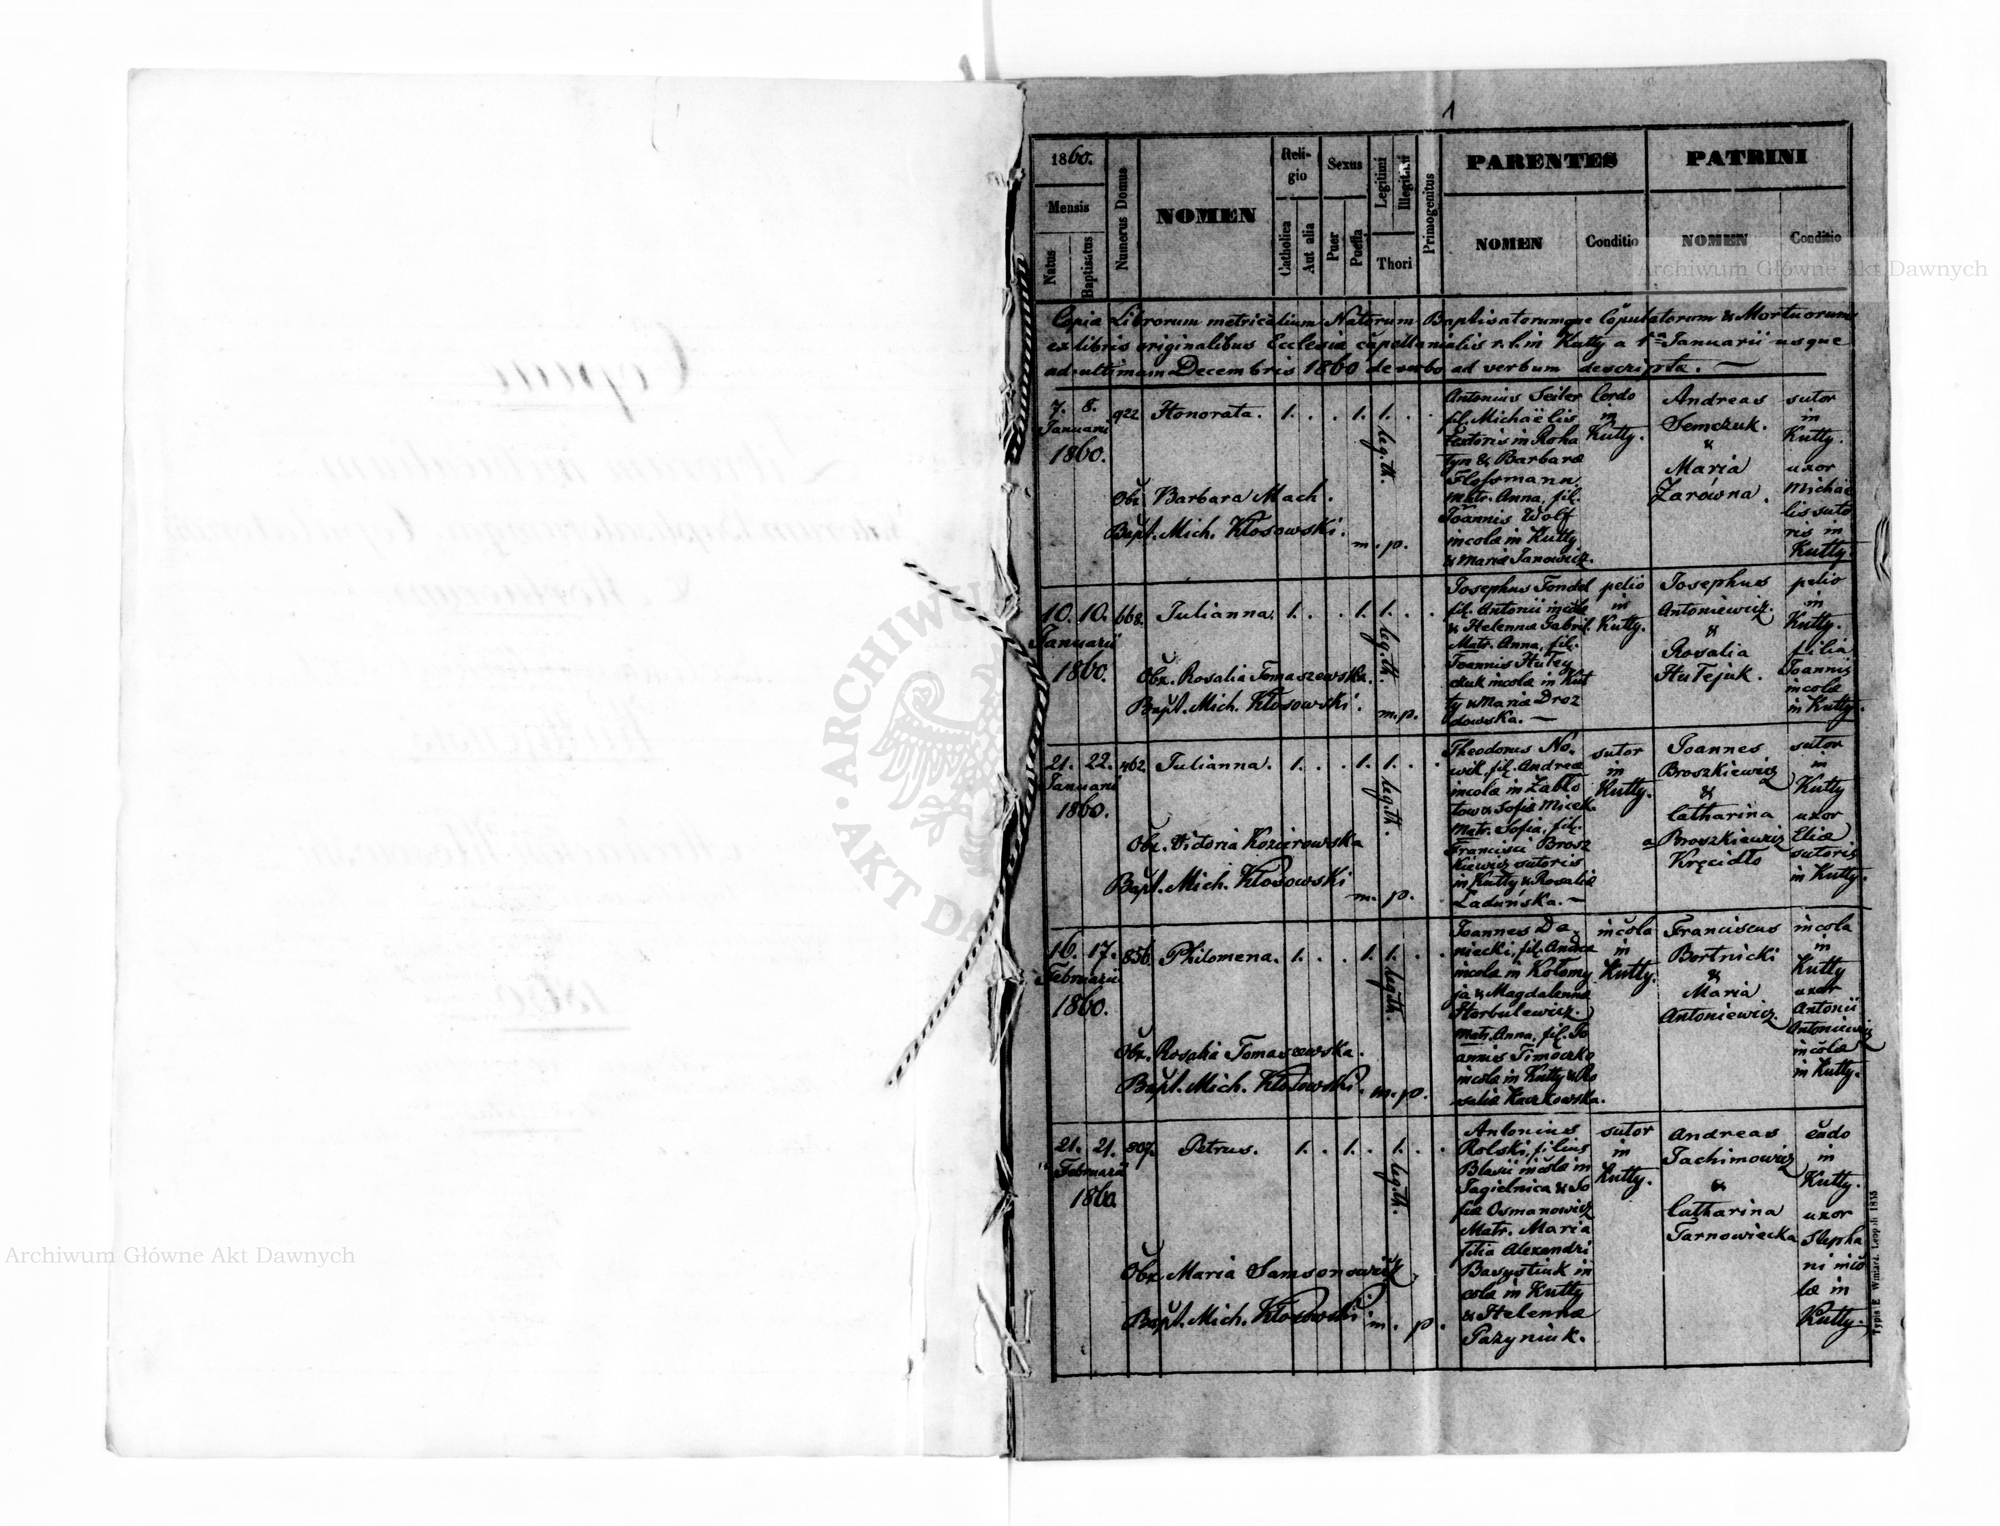 1
1860.
Mensis
Natus
Baptisatus
Numerus Domus
NOMEN
Religio
Catholica
Aut alia
Sexus
Puer
Puella
Legitimi
Illegitimi
Thori
Primogenitus
PARENTES
NOMEN
Conditio
PATRINI
NOMEN
Conditio
Copia Librorum metricalium Natorum Baptisatorumque Copulatorum & Mortuorum
ex libris originalibus Ecclesiæ capellanialis r. l. in Kutty a 1ma Januarii usque
ad ultimam Decembris 1860 de verbo ad verbum descripta. —
7. 8.
Januarii
1860.
922
Honorata.
1. . . 1. 1. . .
leg. th.
Obs. Barbara Mach.
Bapt. Mich. Kłosowski. m. p.
Antonius Seiler
fil. Michaëlis
textoris in Roha
tyn & Barbara
Flossmann
Matr. Anna, fil.
Joannis Wolf
incola in Kutty
& Maria Janowicz.
Cordo
in
Kutty.
Andreas
Semczuk.
&
Maria
Zarówna.
sutor
in
Kutty.
uxor
Michaë
lis suto
ris in
Kutty.
10. 10.
Januarii
1860.
668.
Julianna.
1. . . 1. 1. . .
leg. th.
Obs. Rosalia Tomaszewska.
Bapt. Mich. Kłosowski. m. p.
Josephus Fondal
fil. Antonii incola
& Helenna Gabril.
Matr. Anna, fil.
Joannis Hutey
czuk incola in Kut
ty & Maria Droz
dowska. —
pelio
in
Kutty.
Josephus
Antoniewicz.
&
Rosalia
Hutejuk.
pelio
in
Kutty.
filia
Joannis
incola
in Kutty.
21. 22.
Januarii
1860.
462.
Julianna.
1. . . 1. 1. . .
leg. th.
Obs. Victoria Kozierowska
Bapt. Mich. Kłosowski m. p.
Theodorus No-
wik, fil. Andrea
incola in Zabło
tow & Sofia Micek.
Matr. Sofia, fil.
Francisci Brosz
kiewicz sutoris
in Kutty & Rosalia
Laduńska. —
sutor
in
Kutty.
Joannes
Broszkiewicz
&
Catharina
a Broszkiewicz
Kręcidło
sutor
in
Kutty
uxor
Eliæ
sutoris
in Kutty.
16. 17.
Februarii
1860.
856.
Philomena.
1. . . 1. 1. . .
leg. th.
Obs. Rosalia Tomaszewska.
Bapt. Mich. Kłosowski. m. p.
Joannes Da-
niecki, fil. Andrea
incola in Kołomy
ja & Magdalenna
Horbulewicz.
Matr. Anna, fil. Jo
annis Timoczko
incola in Kutty & Ro
salia Kaczkowska.
incola
in
Kutty.
Franciscus
Bortnicki
&
Maria
Antoniewicz.
incola
in
Kutty
uxor
Antonii
Antoniewicz
incola
in Kutty.
21. 21.
Februarii
1860.
807.
Petrus.
1. . 1. . 1. . .
leg. th.
Obs. Maria Samsonowicz
Bapt. Mich. Kłosowski. m. p.
Antonius
Rolski, filius
Blasii incola in
Jagielnica & So
fia Osmanowicz
Matr. Maria
filia Alexandri
Basystiuk in
cola in Kutty
& Helenna
Pazyniuk.
sutor
in
Kutty.
Andreas
Jachimowicz
&
Catharina
Tarnowiecka
cudo
in
Kutty.
uxor
Stepha
ni inco
la in
Kutty.
Typis E. Winiarz. Leopoli 1855
Archiwum Główne Akt Dawnych
Archiwum Główne Akt Dawnych